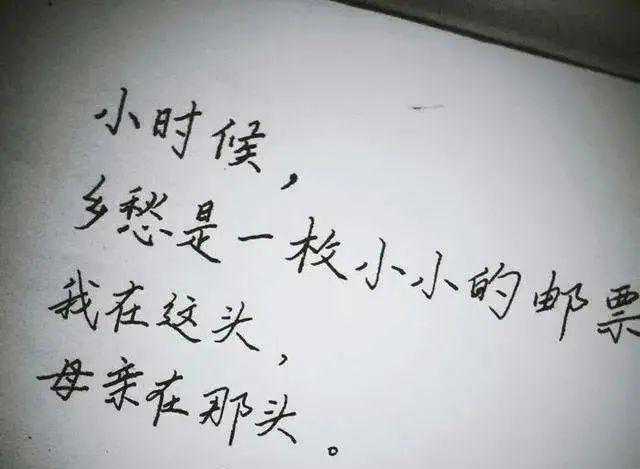 小时候，
乡愁是一枚小小的邮票
我在这头，
母亲在那头。